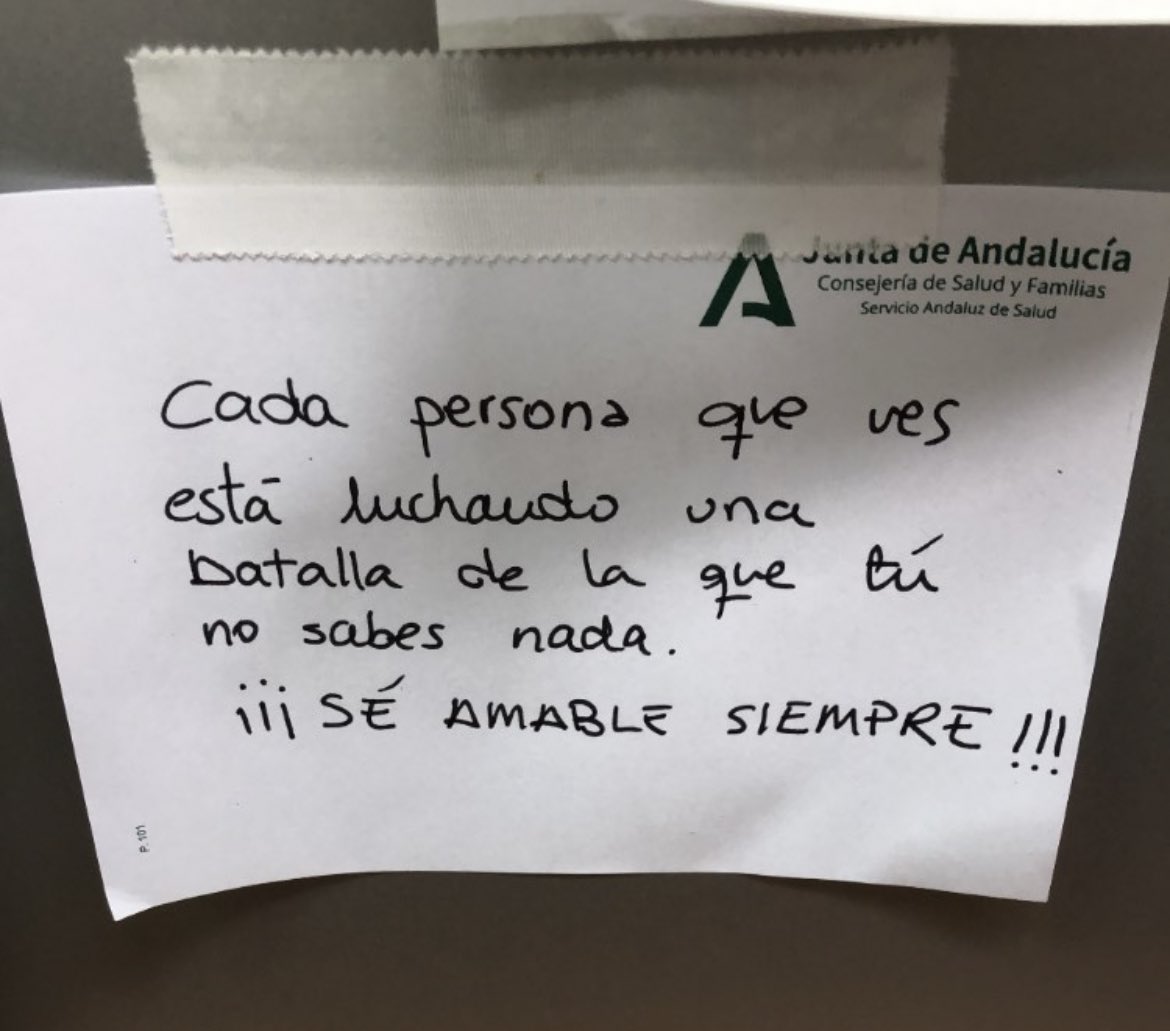 Junta de Andalucía
Consejería de Salud y Familias
Servicio Andaluz de Salud
Cada persona que ves
está luchando una
batalla de la que tú
no sabes nada.
¡¡¡ SÉ AMABLE SIEMPRE !!!
P. 101